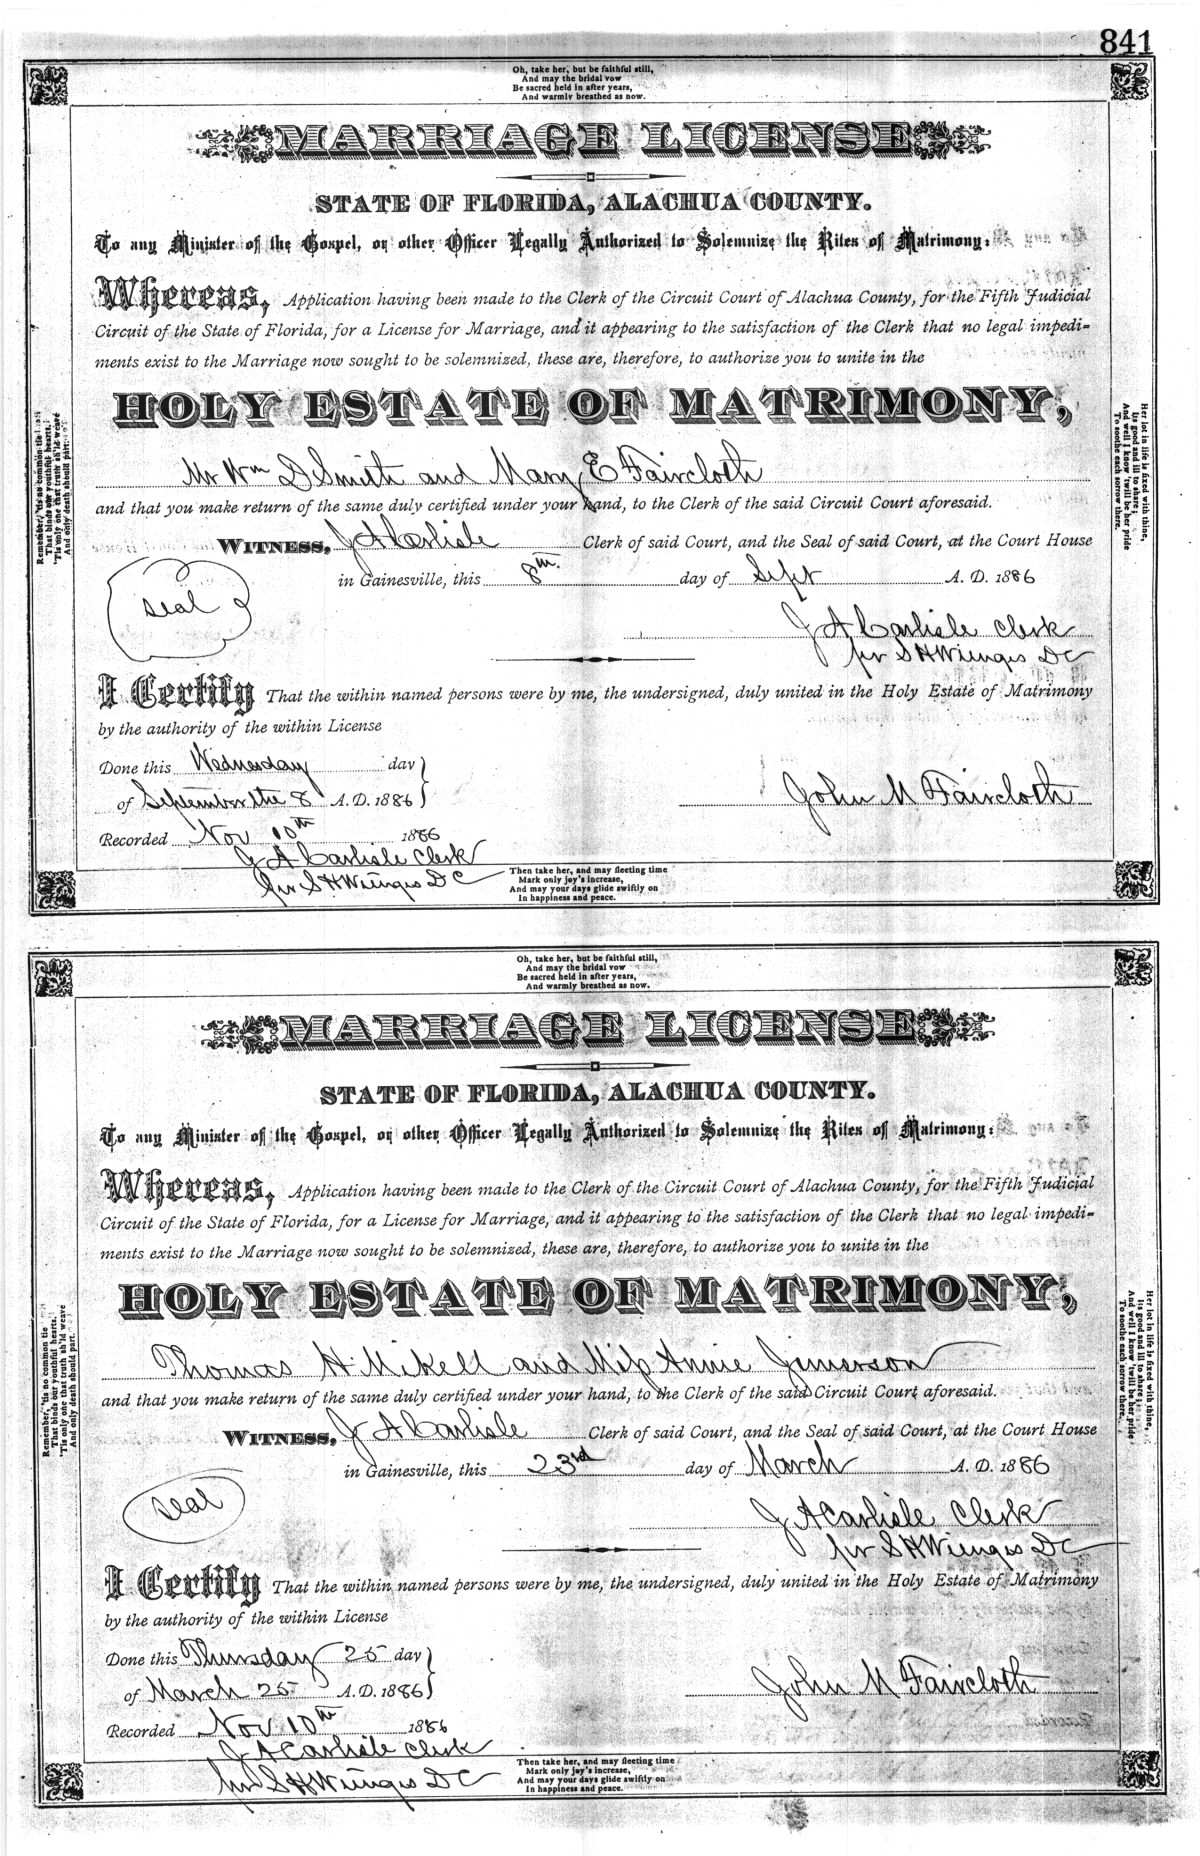 841
Oh, take her, but be faithful still,
And may the bridal vow
Be sacred held in after years,
And warmly breathed as now.
MARRIAGE LICENSE
STATE OF FLORIDA, ALACHUA COUNTY.
To any Minister of the Gospel, or other Officer Legally Authorized to Solemnize the Rites of Matrimony:
Whereas, Application having been made to the Clerk of the Circuit Court of Alachua County, for the Fifth Judicial
Circuit of the State of Florida, for a License for Marriage, and it appearing to the satisfaction of the Clerk that no legal impedi-
ments exist to the Marriage now sought to be solemnized, these are, therefore, to authorize you to unite in the
HOLY ESTATE OF MATRIMONY,
Mr Wm S Smith and Mary E Faircloth
and that you make return of the same duly certified under your hand, to the Clerk of the said Circuit Court aforesaid.
WITNESS, J A Carlisle Clerk of said Court, and the Seal of said Court, at the Court House
in Gainesville, this 8th. day of Sept A. D. 1886
seal
J A Carlisle Clerk
per S H Wienges DC
I Certify That the within named persons were by me, the undersigned, duly united in the Holy Estate of Matrimony
by the authority of the within License
Done this Wednesday day
of September the 8 A. D. 1886
John M Faircloth
Recorded Nov 10th 1886
J A Carlisle Clerk
per S H Wienges DC
Then take her, and may fleeting time
Mark only joy's increase,
And may your days glide swiftly on
In happiness and peace.
Remember, 'tis no common tie
That binds our youthful hearts,
'Tis only one that truth sh'ld weave
And only death should part.
Her lot in life is fixed with thine,
Its good and ill to share;
And well I know 'twill be her pride
To soothe each sorrow there.
Oh, take her, but be faithful still,
And may the bridal vow
Be sacred held in after years,
And warmly breathed as now.
MARRIAGE LICENSE
STATE OF FLORIDA, ALACHUA COUNTY.
To any Minister of the Gospel, or other Officer Legally Authorized to Solemnize the Rites of Matrimony:
Whereas, Application having been made to the Clerk of the Circuit Court of Alachua County, for the Fifth Judicial
Circuit of the State of Florida, for a License for Marriage, and it appearing to the satisfaction of the Clerk that no legal impedi-
ments exist to the Marriage now sought to be solemnized, these are, therefore, to authorize you to unite in the
HOLY ESTATE OF MATRIMONY,
Thomas H Mikell and Miss Annie Jimerson
and that you make return of the same duly certified under your hand, to the Clerk of the said Circuit Court aforesaid.
WITNESS, J A Carlisle Clerk of said Court, and the Seal of said Court, at the Court House
in Gainesville, this 23rd day of March A. D. 1886
seal
J A Carlisle Clerk
per S H Wienges DC
I Certify That the within named persons were by me, the undersigned, duly united in the Holy Estate of Matrimony
by the authority of the within License
Done this Thursday 25 day
of March 25 A. D. 1886
John M Faircloth
Recorded Nov 10th 1886
J A Carlisle Clerk
per S H Wienges DC
Then take her, and may fleeting time
Mark only joy's increase,
And may your days glide swiftly on
In happiness and peace.
Remember, 'tis no common tie
That binds our youthful hearts,
'Tis only one that truth sh'ld weave
And only death should part.
Her lot in life is fixed with thine,
Its good and ill to share;
And well I know 'twill be her pride
To soothe each sorrow there.